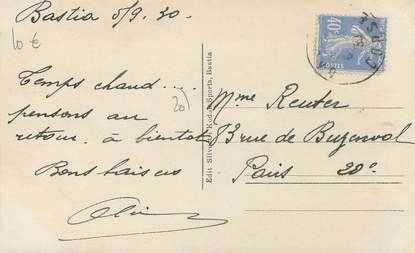 Bastia 5/9.30
10 €
Temps chaud....
pensons au
retour. à bientot
Bons baisers
20)
Edit Silv Kodak Sports, Bastia
40c
POSTES
CORSE
Mme Reuter
3 rue de Buzenval
Paris 20e